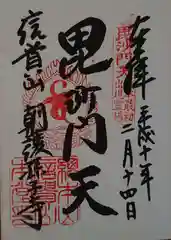 奉拝 平成十一年二月十四日
毘沙門天
信貴山 朝護孫子寺